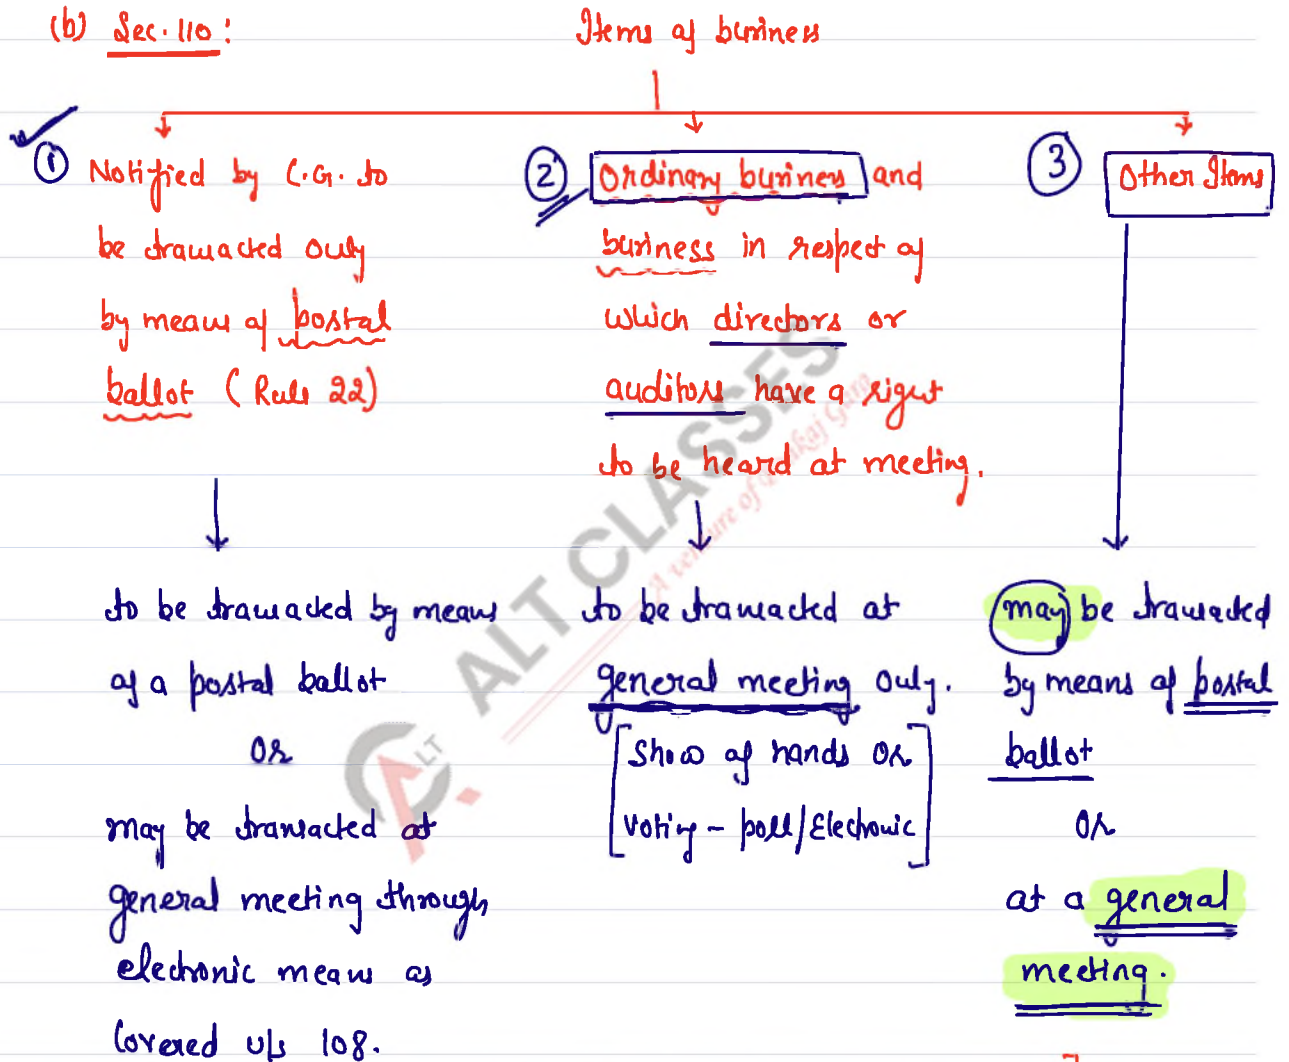 (b) Sec. 110 :
Items of business
① Notified by C.G. to
be transacted only
by means of postal
ballot (Rule 22)
to be transacted by means
of a postal ballot
OR
may be transacted at
general meeting through
electronic means as
covered u/s 108.
② Ordinary business and
business in respect of
which directors or
auditors have a right
to be heard at meeting.
to be transacted at
general meeting only.
[Show of hands or
voting - poll/Electronic]
③ Other Items
may be transacted
by means of postal
ballot
OR
at a general
meeting.
ALT CLASSES
A venture of Pankaj Garg
ALT